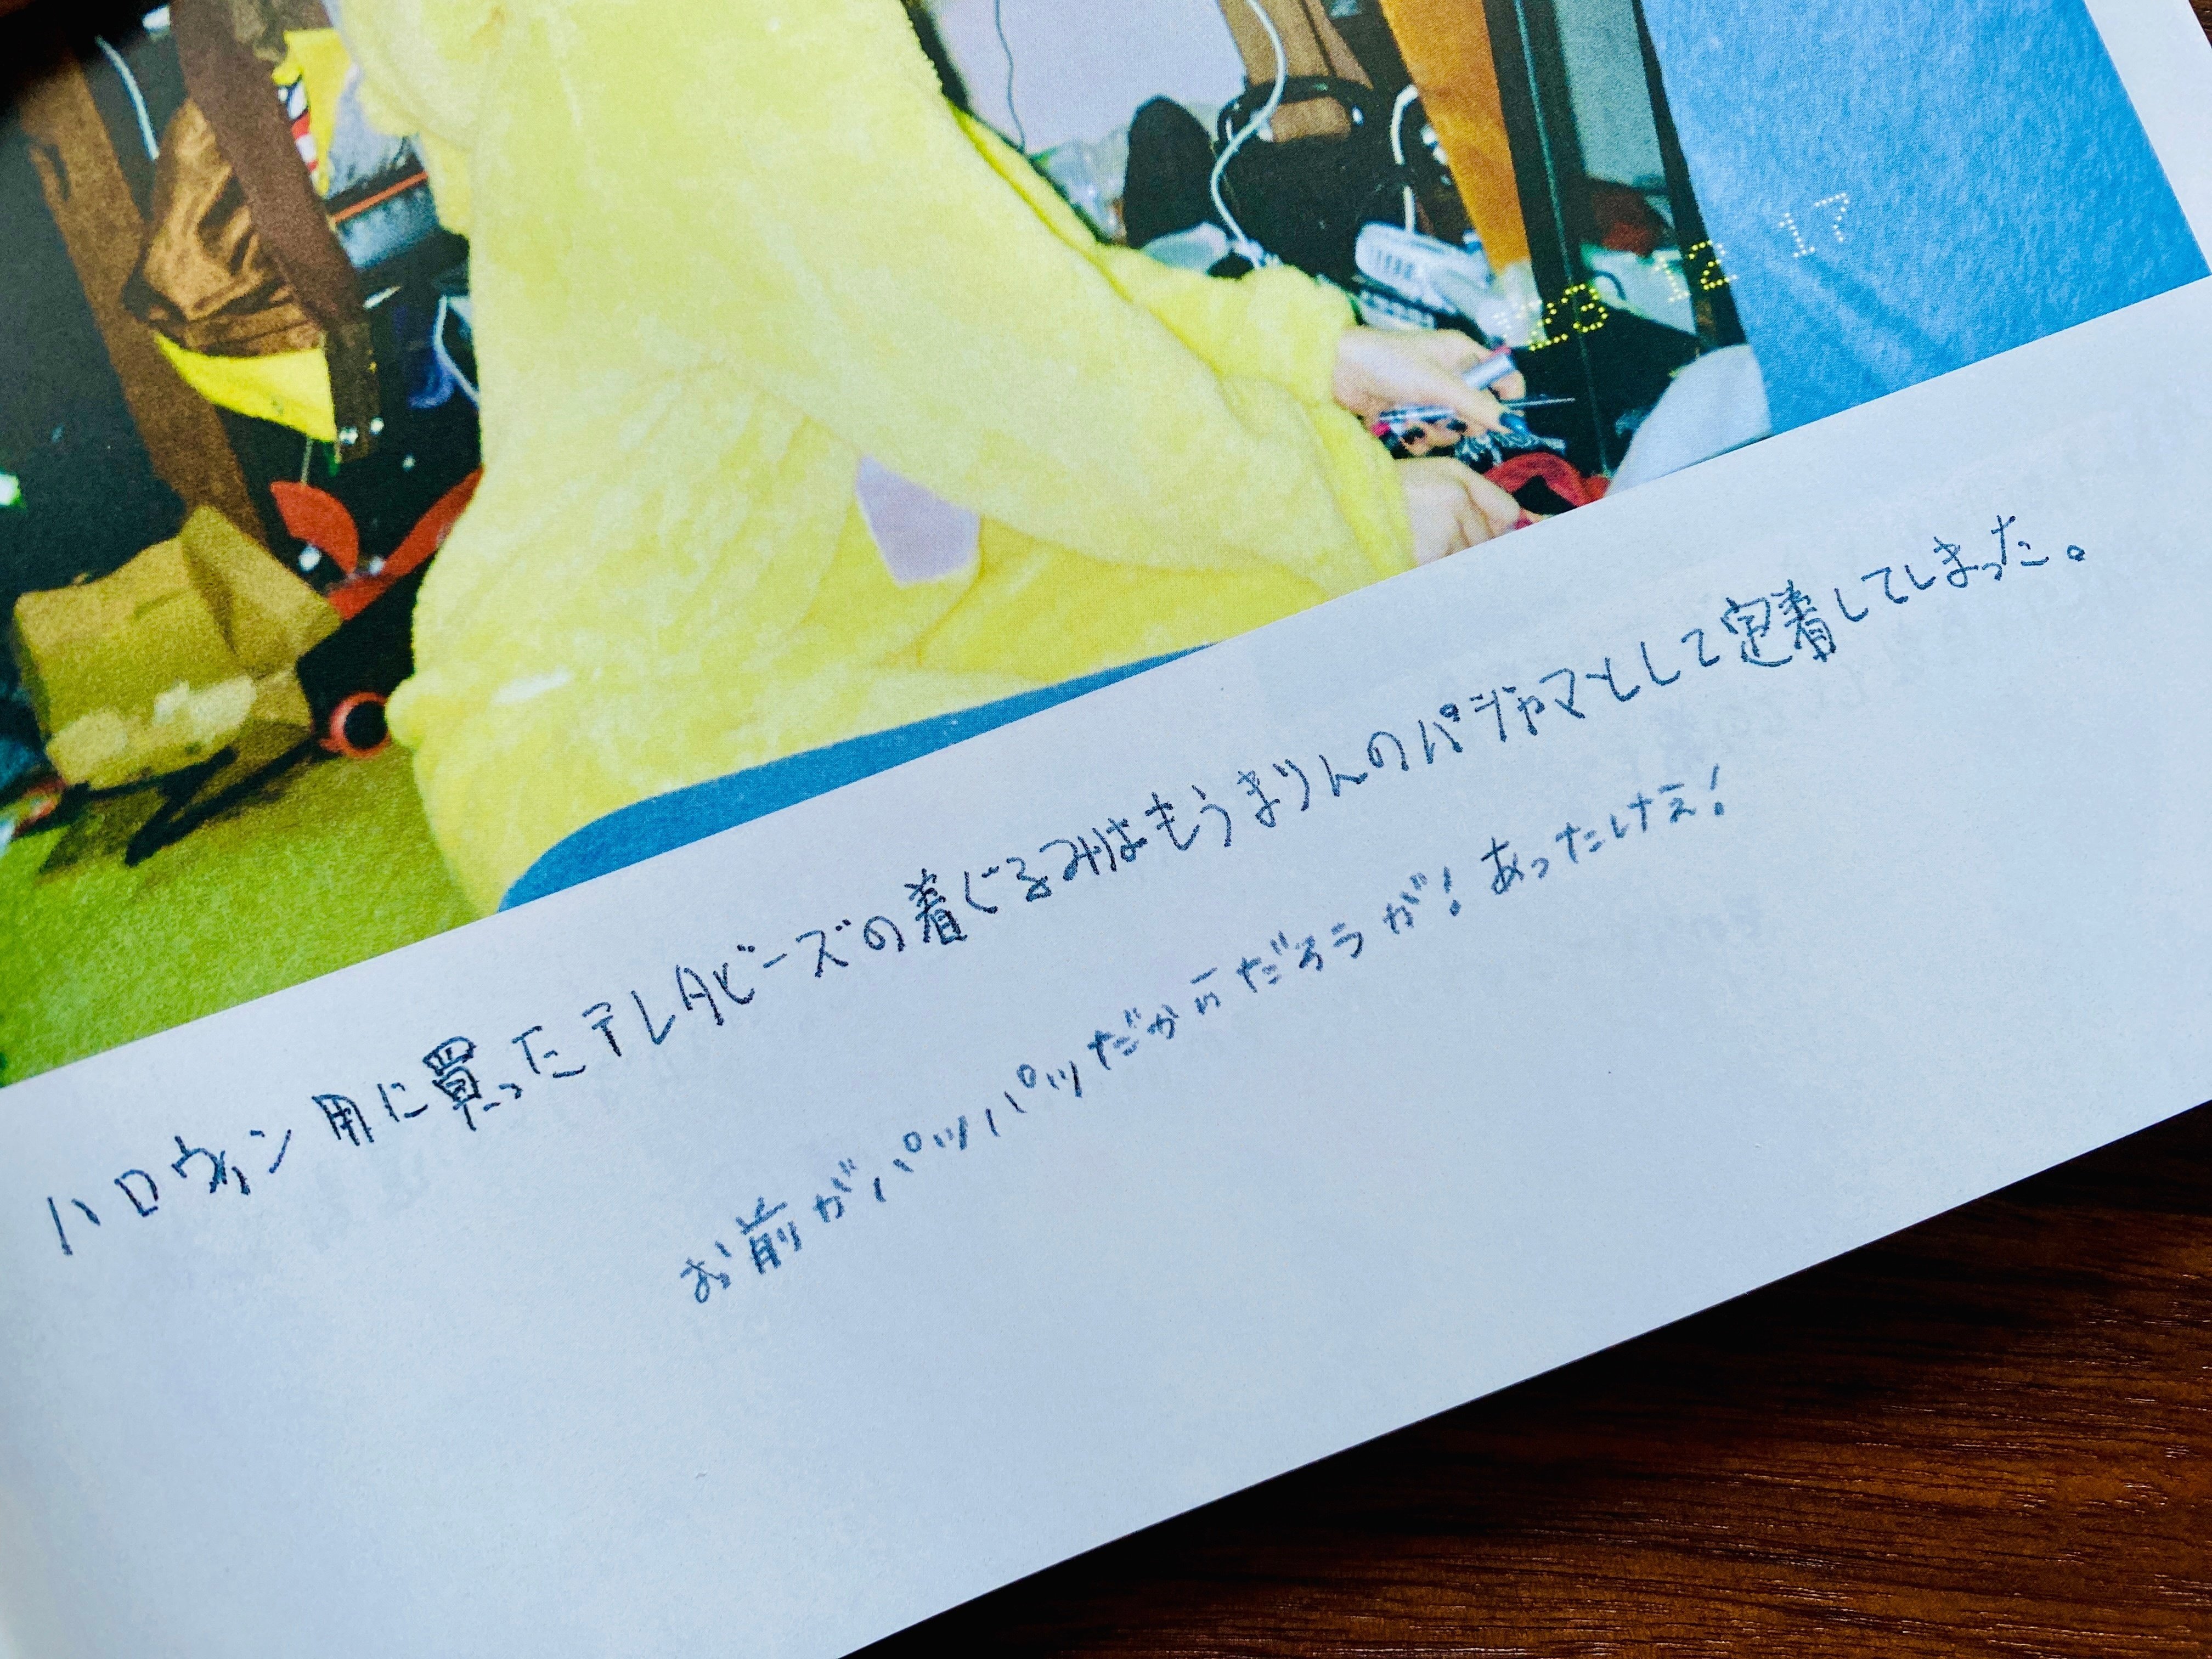 '18 12 17
ハロウィン用に買ったテレタビーズの着ぐるみはもうまりんのパジャマとして定着してしまった。
お前がパツパツだからだろうが！あったけえ！